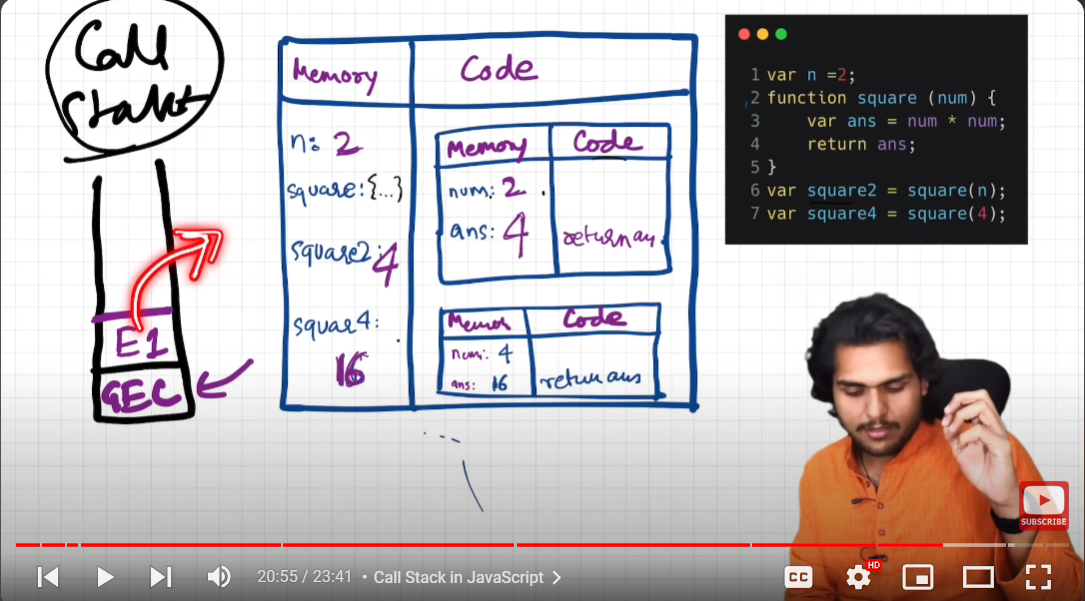 Call
Stakt
Memory
Code
n: 2
square: {...}
square2: 4
squar4:
16
Memory
Code
num: 2
ans: 4
return an
Memor
Code
num: 4
ans: 16
return ans
E1
GEC
1 var n =2;
2 function square (num) {
3 var ans = num * num;
4 return ans;
5 }
6 var square2 = square(n);
7 var square4 = square(4);
SUBSCRIBE
20:55 / 23:41 • Call Stack in JavaScript
CC
HD